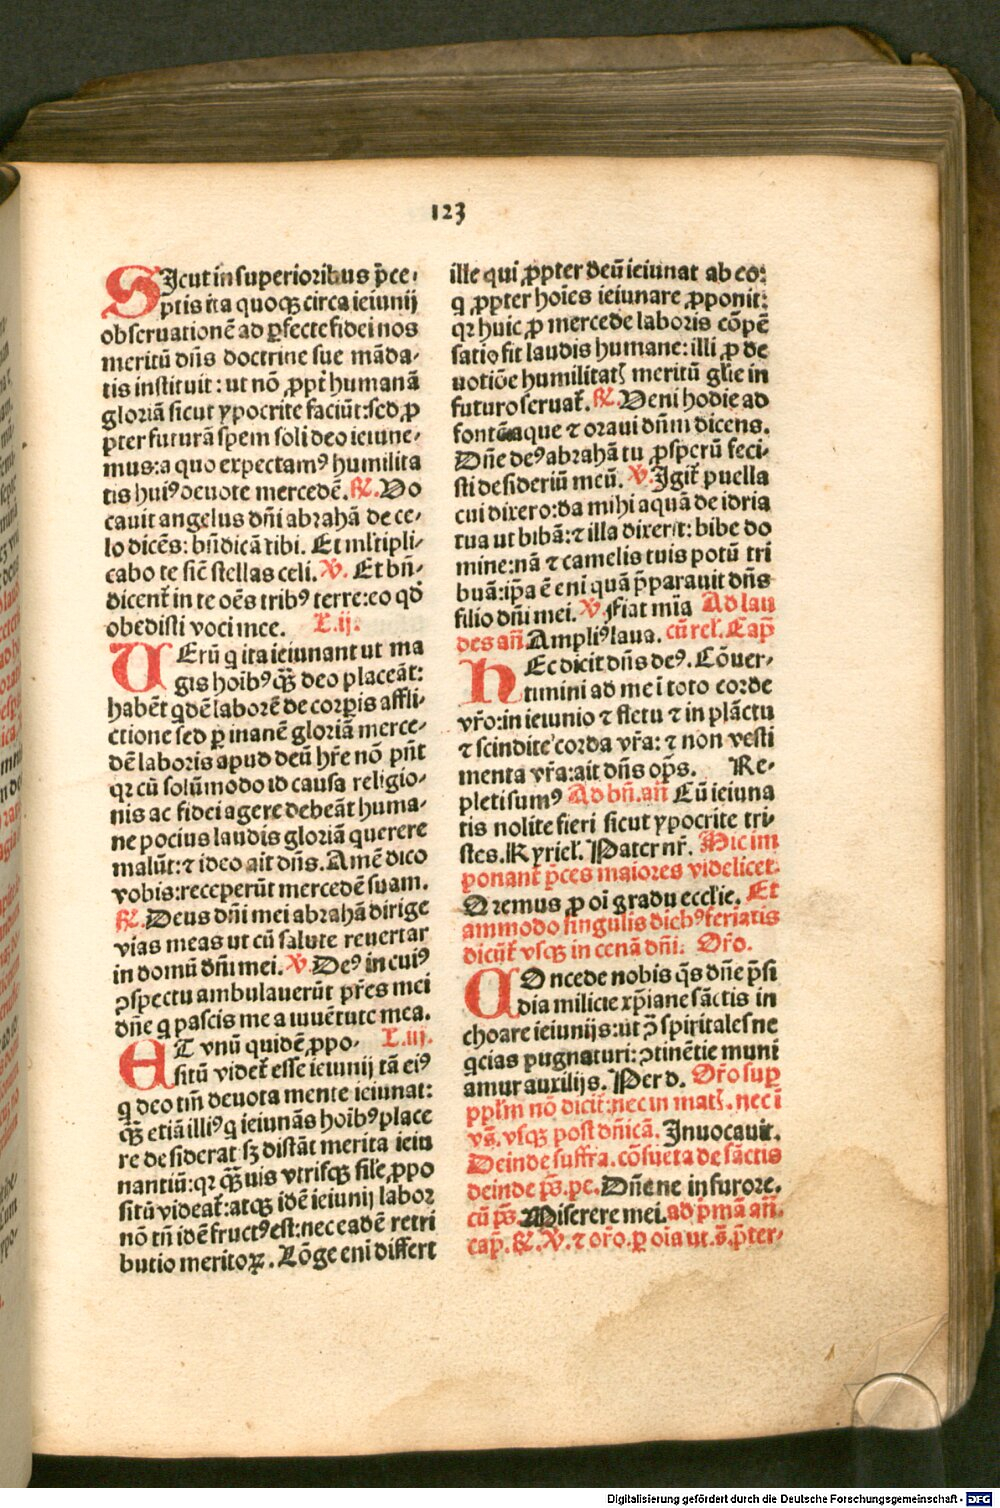 123
SJcut in superioribus p̄ce⸗
ptis ita quoqꝫ circa ieiunij
obseruationē ad ꝑfecte fidei nos
meritū dn̄s doctrine sue māda⸗
tis instituit : ut nō ꝓpt̄ humanā
gloriā sicut ypocrite faciūt:sed ꝓ
pter futurā spem soli deo ieiune⸗
mus:a quo expectamꝰ humilita
tis huiꝰ deuote mercedē. ℟. Vo
cauit angelus dn̄i abrahā de ce⸗
lo dicēs: bn̄dicā tibi. Et ml̄tipli⸗
cabo te sic̄ stellas celi. ℣. Et bn̄⸗
dicent̄ in te oēs tribꝰ terre:eo qd̄
obedisti voci mee. L.ij.
VErū q ita ieiunant ut ma
gis hoībꝰ qꝫ̄ deo placeāt:
habēt qdē laborē de corꝑis affli⸗
ctione sed ꝑ inanē gloriā merce⸗
dē laboris apud deū hr̄e nō pn̄t
qr cū solūmodo id causa religio⸗
nis ac fidei agere debeāt huma⸗
ne pocius laudis gloriā querere
malūt:⁊ ideo ait dn̄s. Amē dico
vobis:receperūt mercedē suam.
℟. Deus dn̄i mei abrahā dirige
vias meas ut cū salute reuertar
in domū dn̄i mei. ℣. Deꝰ in cuiꝰ
ꝯspectu ambulauerūt pr̄es mei
dn̄e q pascis me a iuuētute mea.
ET vnū quidē ꝓpo⸗ L.iij.
sitū videt̄ esse ieiunij tā eiꝰ
q deo tm̄ deuota mente ieiunat:
qꝫ̄ etiā illiꝰ q ieiunās hoībꝰ place
re desiderat sꝫ distāt merita ieiu
nantiū:qr qꝫ̄uis vtrisqꝫ sil̄e ꝓpo
sitū videat̄:atqꝫ idē ieiunij labor
nō tn̄ idē fructꝰ est:nec eadē retri
butio meritoꝝ. Lōge eni differt
ille qui ꝓpter deū ieiunat ab eo:
q ꝓpter hoīes ieiunare ꝓponit:
qr huic ꝓ mercede laboris cōpē
satio fit laudis humane: illi ꝓ de
uotiōe humilitatꝭ meritū gl̄ie in
futuro seruat̄. ℟. Veni hodie ad
fontē aque ⁊ oraui dn̄m dicens.
Dn̄e deꝰ abrahā tu ꝓsperū feci⸗
sti desideriū meū. ℣. Jgit̄ puella
cui dixero:da mihi aquā de idria
tua ut bibā:⁊ illa dixerit: bibe do
mine:nā ⁊ camelis tuis potū tri
buā:ip̄a ē eni quā p̄parauit dn̄s
filio dn̄i mei. ℣. Fiat mīa Ad lau
des an̄. Ampliꝰ laua. cū rel̄. Cap̄
HEc dicit dn̄s deꝰ. Cōuer⸗
timini ad me ī toto corde
vr̄o:in ieiunio ⁊ fletu ⁊ in plāctu
⁊ scindite corda vr̄a: ⁊ non vesti
menta vr̄a:ait dn̄s op̄s. Re⸗
pleti sumꝰ Ad bn̄.an̄ Cū ieiuna
tis nolite fieri sicut ypocrite tri⸗
stes. Kyriel̄. Pater nr̄. Hic im
ponant̄ p̄ces maiores videlicet.
Oremus ꝓ oī gradu eccl̄ie. Et
ammodo singulis diebꝰ feriatis
dicūt̄ vsqꝫ in cenā dn̄i. Or̄o.
COncede nobis qs̄ dn̄e p̄si
dia milicie xp̄iane sāctis in
choare ieiunijs:ut ꝯ̄ spiritales ne
qcias pugnaturi:ꝯtinētie muni
amur auxilijs. Per d. Or̄o suꝑ
ppl̄m nō dicit̄:nec in matꝭ. nec ī
vs̄. vsqꝫ post dn̄icā. Jnuocauit.
Deinde suffra. cōsueta de sāctis
deinde ps̄. pe. Dn̄e ne in furore.
cū ps̄. Miserere mei. ad p̄mā an̄.
cap̄. ℟. ℣. ⁊ or̄o. ꝑ oīa ut. s̄. p̄ter⸗
Digitalisierung gefördert durch die Deutsche Forschungsgemeinschaft - DFG